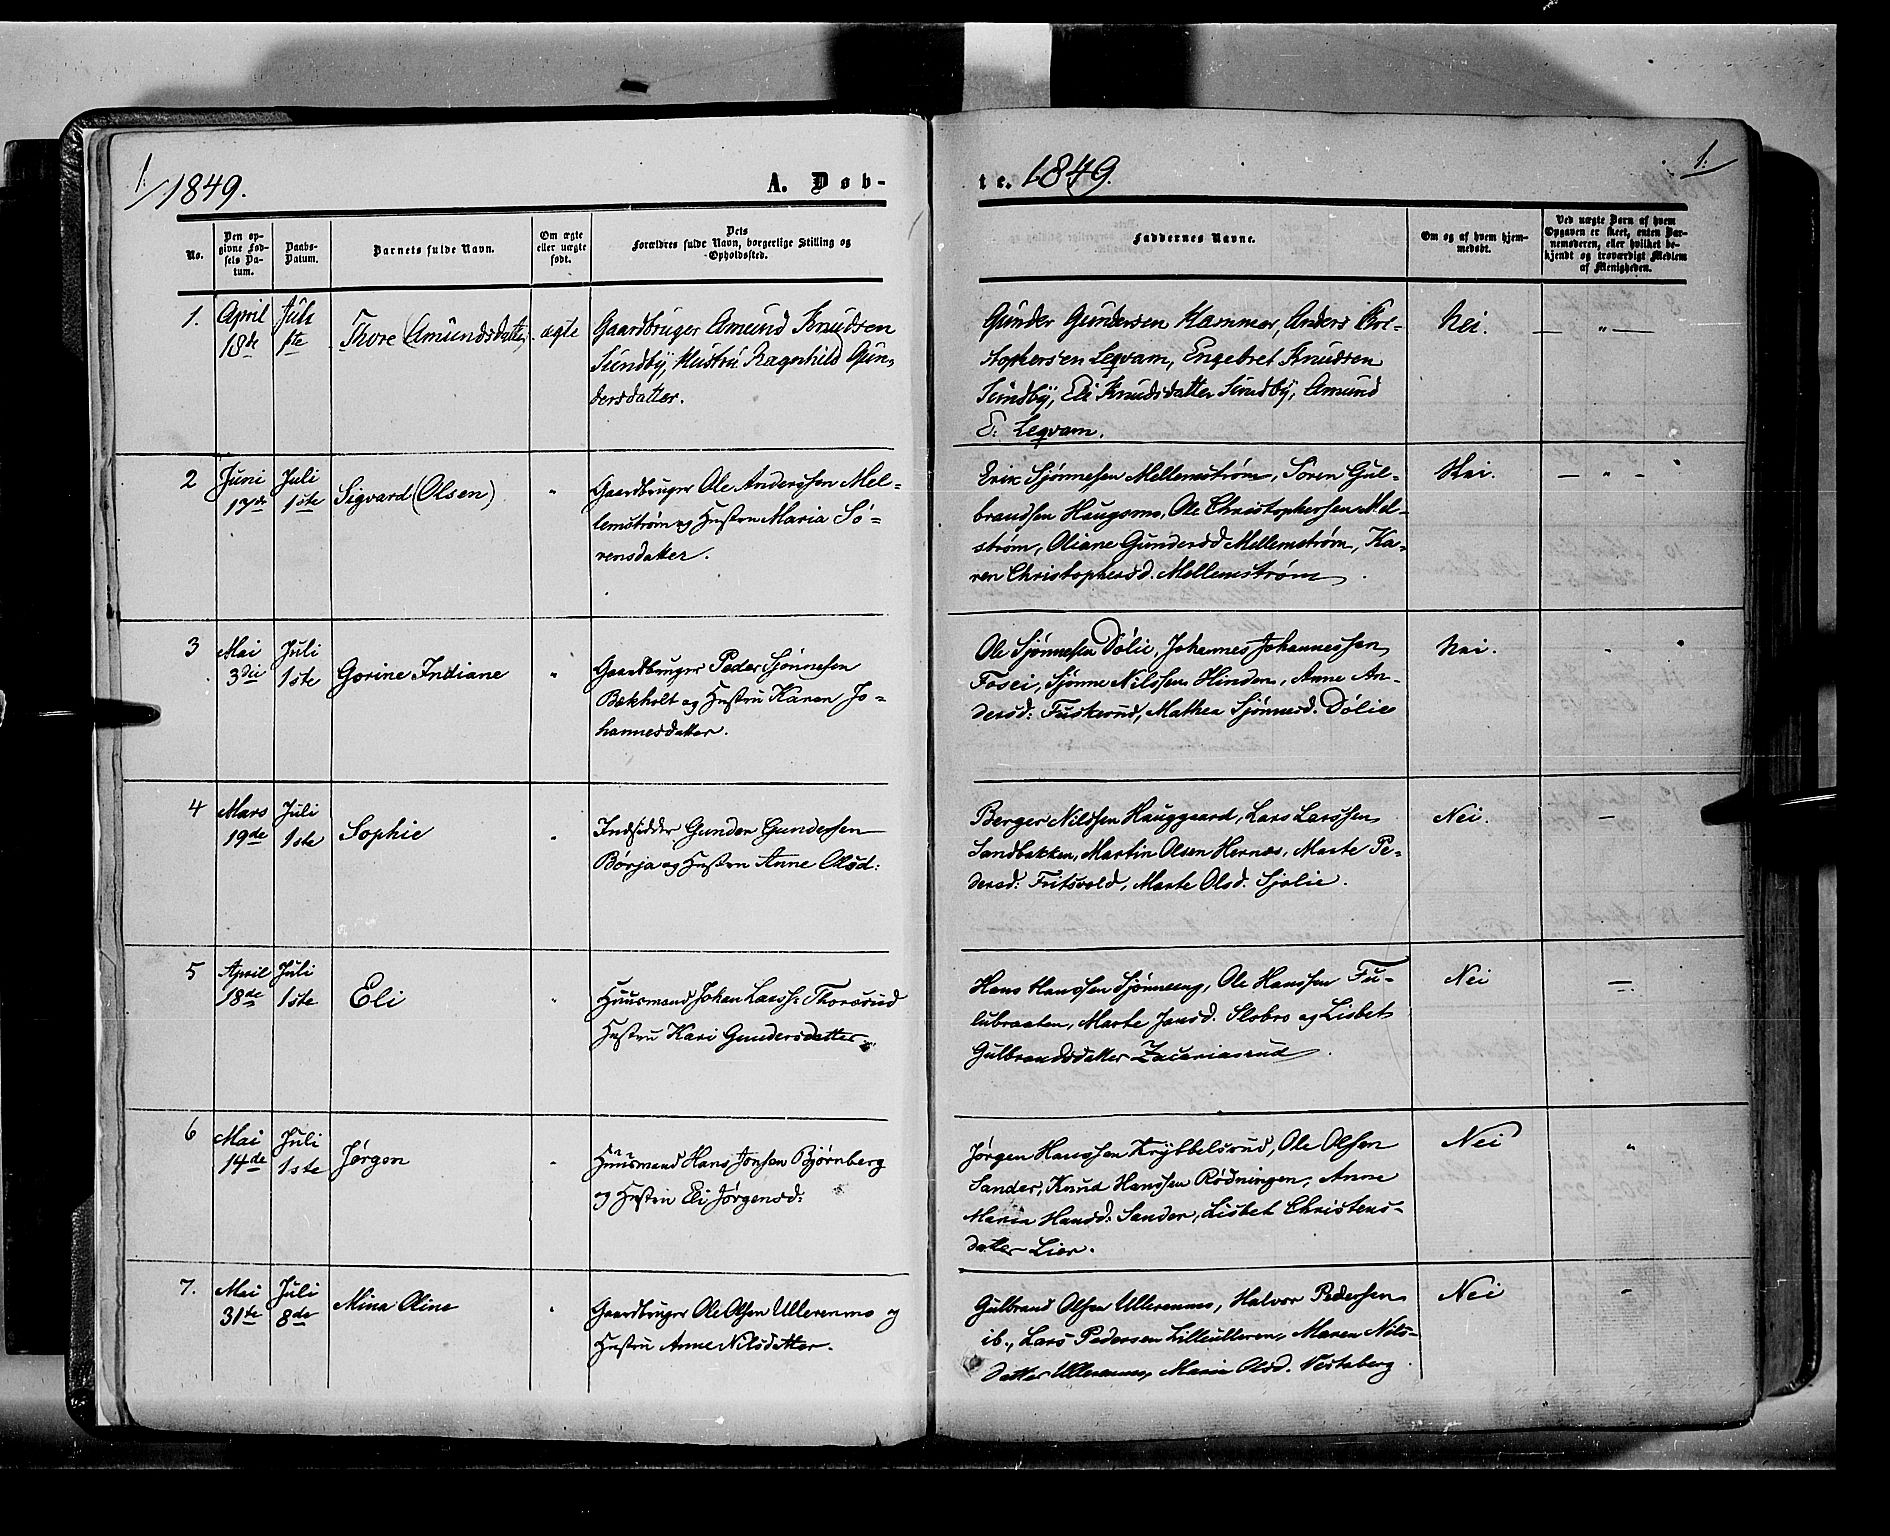 1.
1849.
A. Døb-
te. 1849.
1.
No.
Den op-
givne Fød-
sels Da-
tum.
Daabs-
Datum.
Barnets fulde Navn.
Om ægte
eller uægte
født.
Dets
Forældres fulde Navn, borgerlige Stilling og
Opholdssted.
Faddernes Navne.
Om og af hvem hjem-
medøbt.
Ved uægte Børn af hvem
Opgaven er skeet, enten Bar-
nemoderen, eller hvilket be-
kjendt og troværdigt Medlem
af Menigheden.
1.
April
18de
Juli
1ste
Thore (Amundsdatter)
ægte
Gaardbruger Amund Knudsen
Sundby, Hustru Ragnhild Gun-
dersdatter.
Gunder Gundersen Kammer, Anders Kri-
stophersen Leqvam, Engebret Knudsen
Sundby, Eli Knudsdatter Sundby, Amund
E. Leqvam.
Nei.
— " —
2
Juni
17de
Juli
1ste
Sigvard (Olsen)
"
Gaardbruger Ole Anderssen Mel-
lemstrøm og Hustru Maria Sø-
rensdatter.
Erik Sjønnesen Mellemstrøm, Soren Gul-
brandsen Haugsmo, Ole Christophersen Mel-
strøm, Oliane Gundersd Mellemstrøm, Ka-
ren Christophersd. Mellemstrøm.
Nei.
— " —
3
Mai
3die
Juli
1ste
Gorine Indiane
"
Gaardbruger Peder Sjønnesen
Bekholt og Hustru Karen Jo-
hannesdatter.
Ole Sjønnesen Dølie, Johannes Johannessen
Fosei, Sjønne Nilssen Hinden, Anne An-
dersd: Fuskerud, Mathea Sjønnesd. Dølie
Nei.
"
4
Mars
19de
Juli
1ste
Sophie
"
Indsidder Gunder Gundersen
Børja og Hustru Anne Olsd:
Berger Nilssen Hauggaard, Lars Larssen
Sandbakken, Martin Olsen Hernæs, Marte Pe-
dersd: Fritsvold, Marte Olsd. Sjølie.
Nei.
—
5
April
18de
Juli
1ste
Eli
"
Huusmand Johan Larss: Thorsrud
Hustru Kari Gundersdatter.
Hans Hanssen Sjønneeng, Ole Hanssen Fu-
lubraaten, Marte Jansd. Slobro og Lisbet
Gulbrandsdatter Zacariasrud.
Nei
—
6
Mai
14de
Juli
1ste
Jørgen
"
Huusmand Hans Jonsen Bjørnberg
og Hustru Eli Jørgensd:
Jørgen Hanssen Krybbelsrud, Ole Olsen
Sander, Knud Hanssen Rødningen, Anne
Maria Hansd: Sander, Lisbet Christens-
datter Lier.
Nei
"
7.
Mai
31te
Juli
8de
Mina Oline
"
Gaardbruger Ole Olsen Ullerenmo og
Hustru Anne Nilsdatter.
Gulbrand Olsen Ullerenmo, Halvor Pedersen
ib., Lars Pedersen Lilleulleren, Maren Nils-
datter Ullerenmo, Maria Olsd. Vestaberg
Nei
—